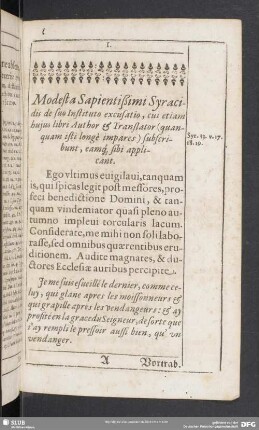 I.
Modesta Sapientißimi Syraci-
dis de suo Instituto excusatio, cui etiam
hujus libri Author & Translator (quan-
quam isti longè impares) subscri-
bunt, eamq́; sibi appli-
cant.
Syr. 33. v. 17.
18. 19.
Ego vltimus euigilaui, tanquam
is, qui spicas legit post messores, pro-
feci benedictione Domini, & tan-
quam vindemiator quasi pleno au-
tumno impleui torcularis lacum.
Considerate, me mihi non soli labo-
rasse, sed omnibus quærentibus eru-
ditionem. Audite magnates, & du-
ctores Ecclesiæ auribus percipite.
Je me suis esueillé le dernier, comme ce-
luy, qui glane apres les moissonneurs &
qui grapille apres les vendangeurs: & ay
profité en la grace du Seigneur, de sorte que
i'ay rempli le pressoir aussi bien, qu'vn
vendanger.
A
Vortrab.
SLUB
DFG